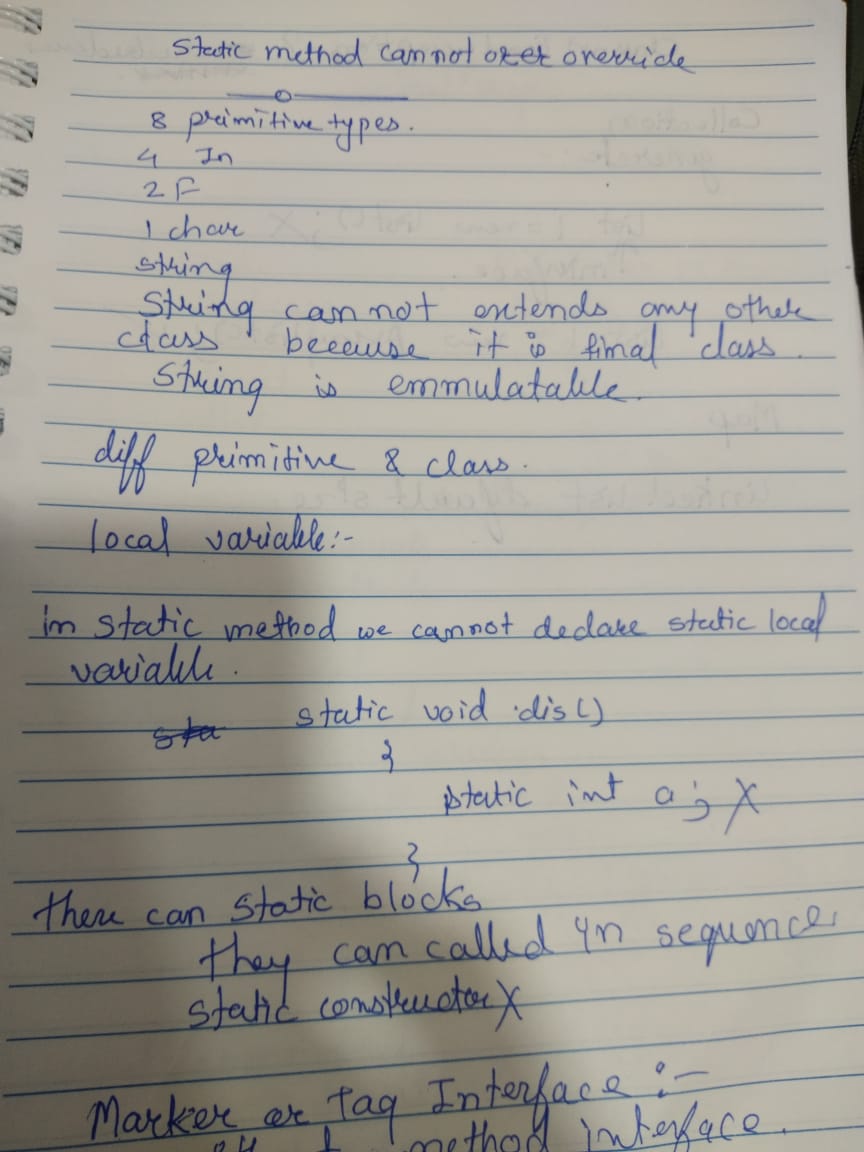 Static method cannot over override
8 primitive types.
4 In
2 F
1 char
string
String can not extends any other
class because it is final class.
String is emmulatable.
diff primitive & class.
local variable:-
in static method we cannot declare static local
variable.
sta static void dis()
{
static int a; X
}
there can static blocks
they can called in sequence.
static constructor X
Marker or Tag Interface :-
method interface.